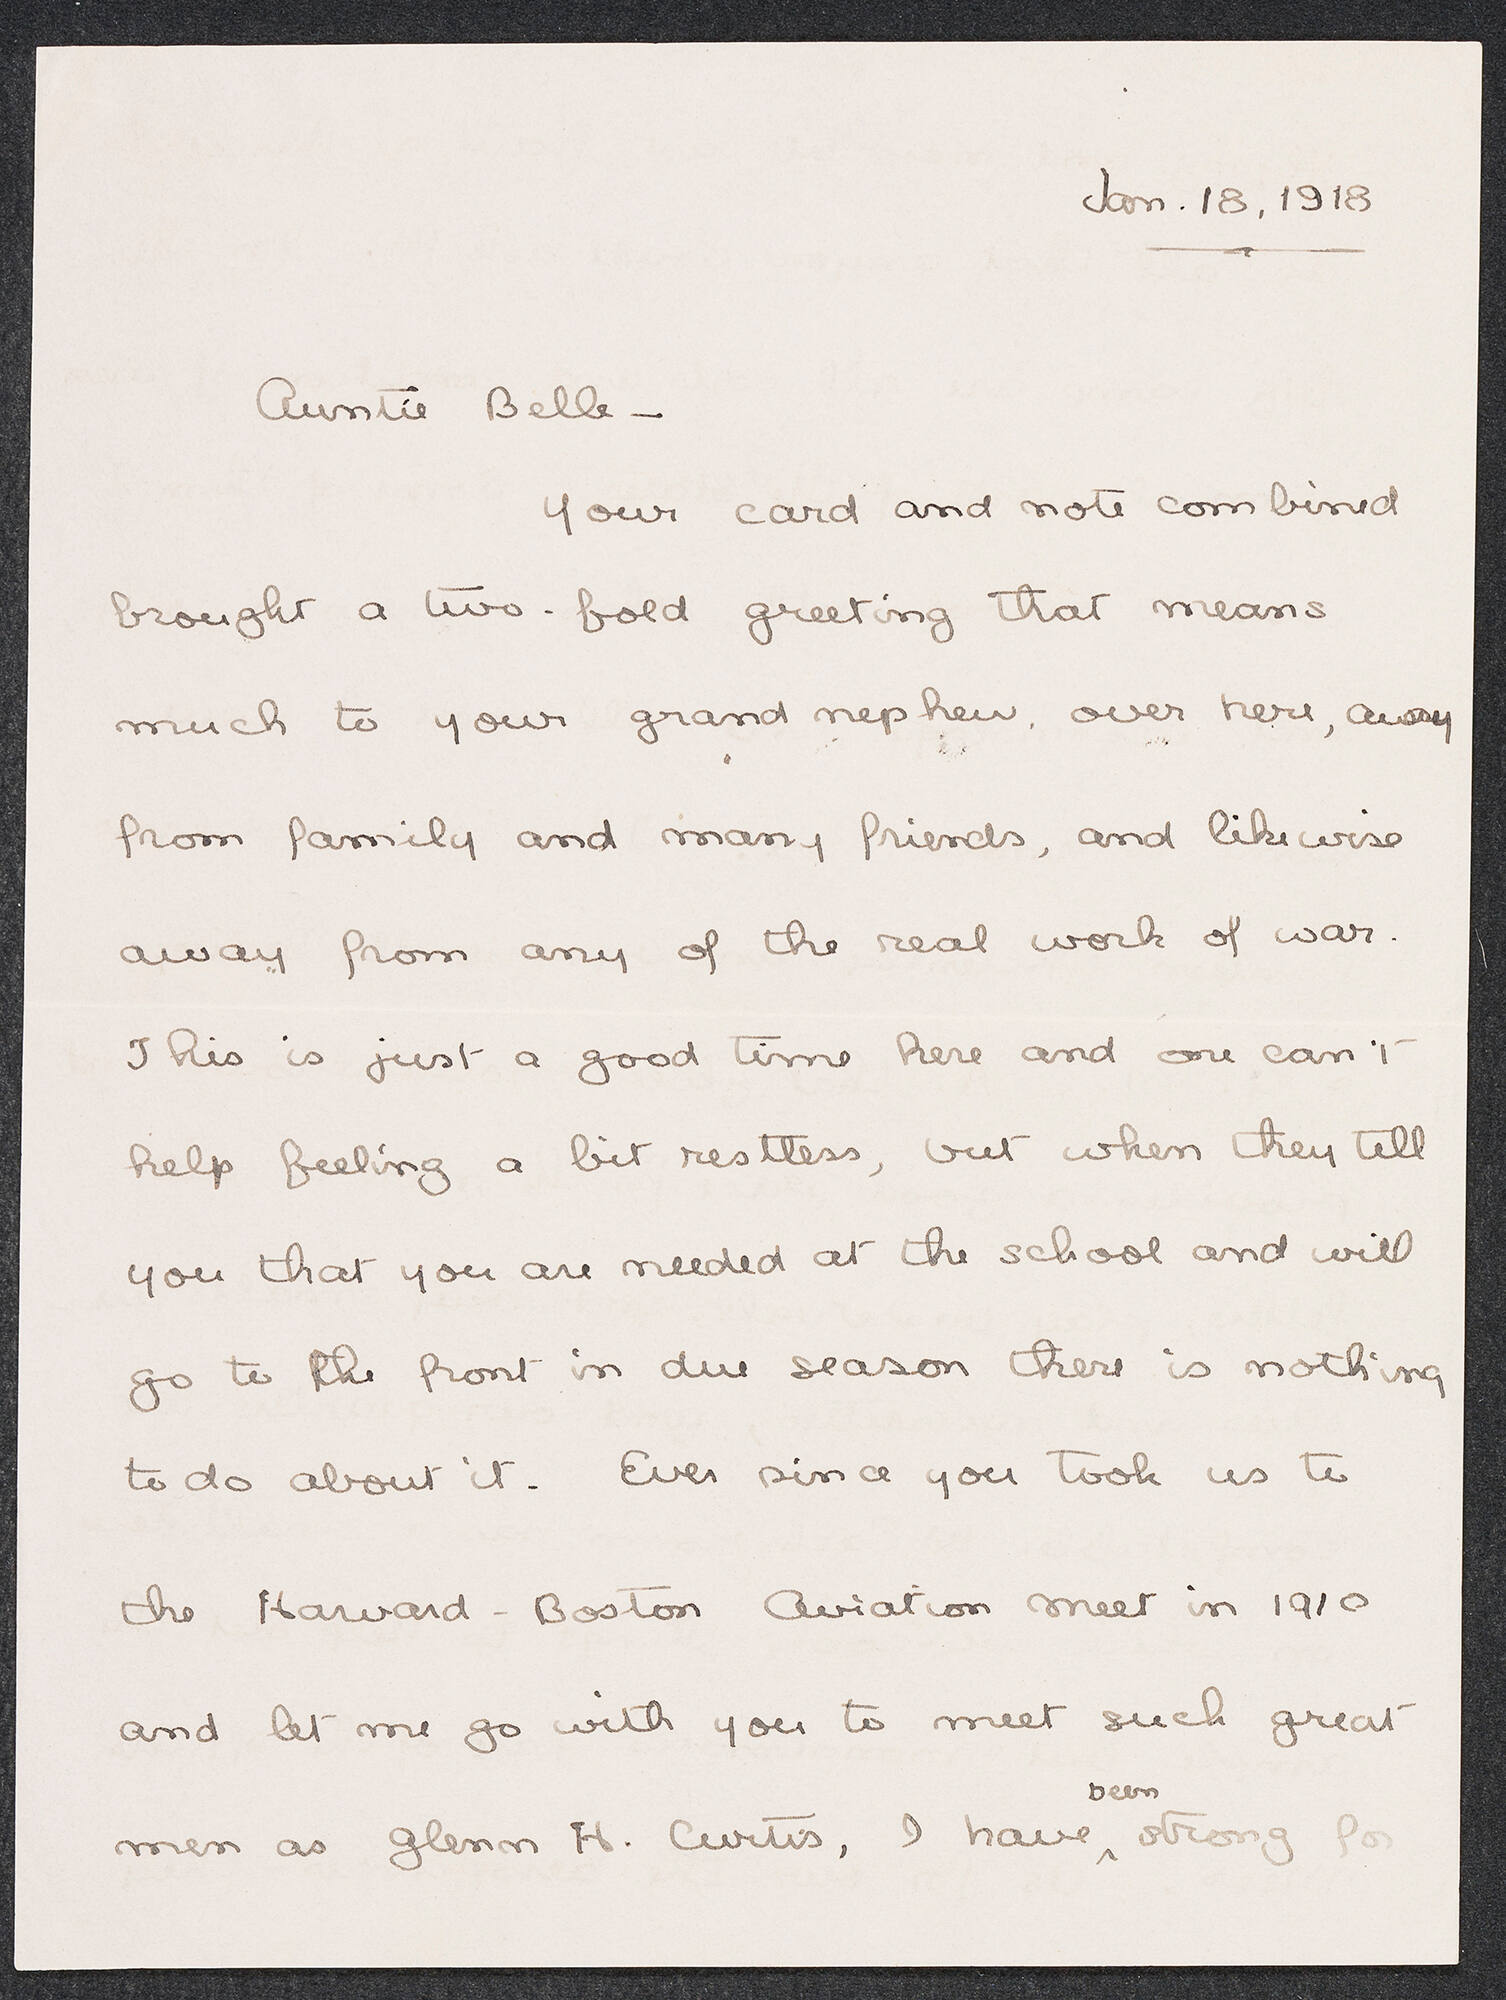 Jan. 18, 1918
Auntie Belle —
Your card and note combined
brought a two-fold greeting that means
much to your grand nephew, over here, away
from family and many friends, and likewise
away from any of the real work of war.
This is just a good time here and one can't
help feeling a bit restless, but when they tell
you that you are needed at the school and will
go to the front in due season there is nothing
to do about it. Ever since you took us to
the Harvard-Boston Aviation meet in 1910
and let me go with you to meet such great
been
men as Glenn H. Curtis, I have ^ strong for